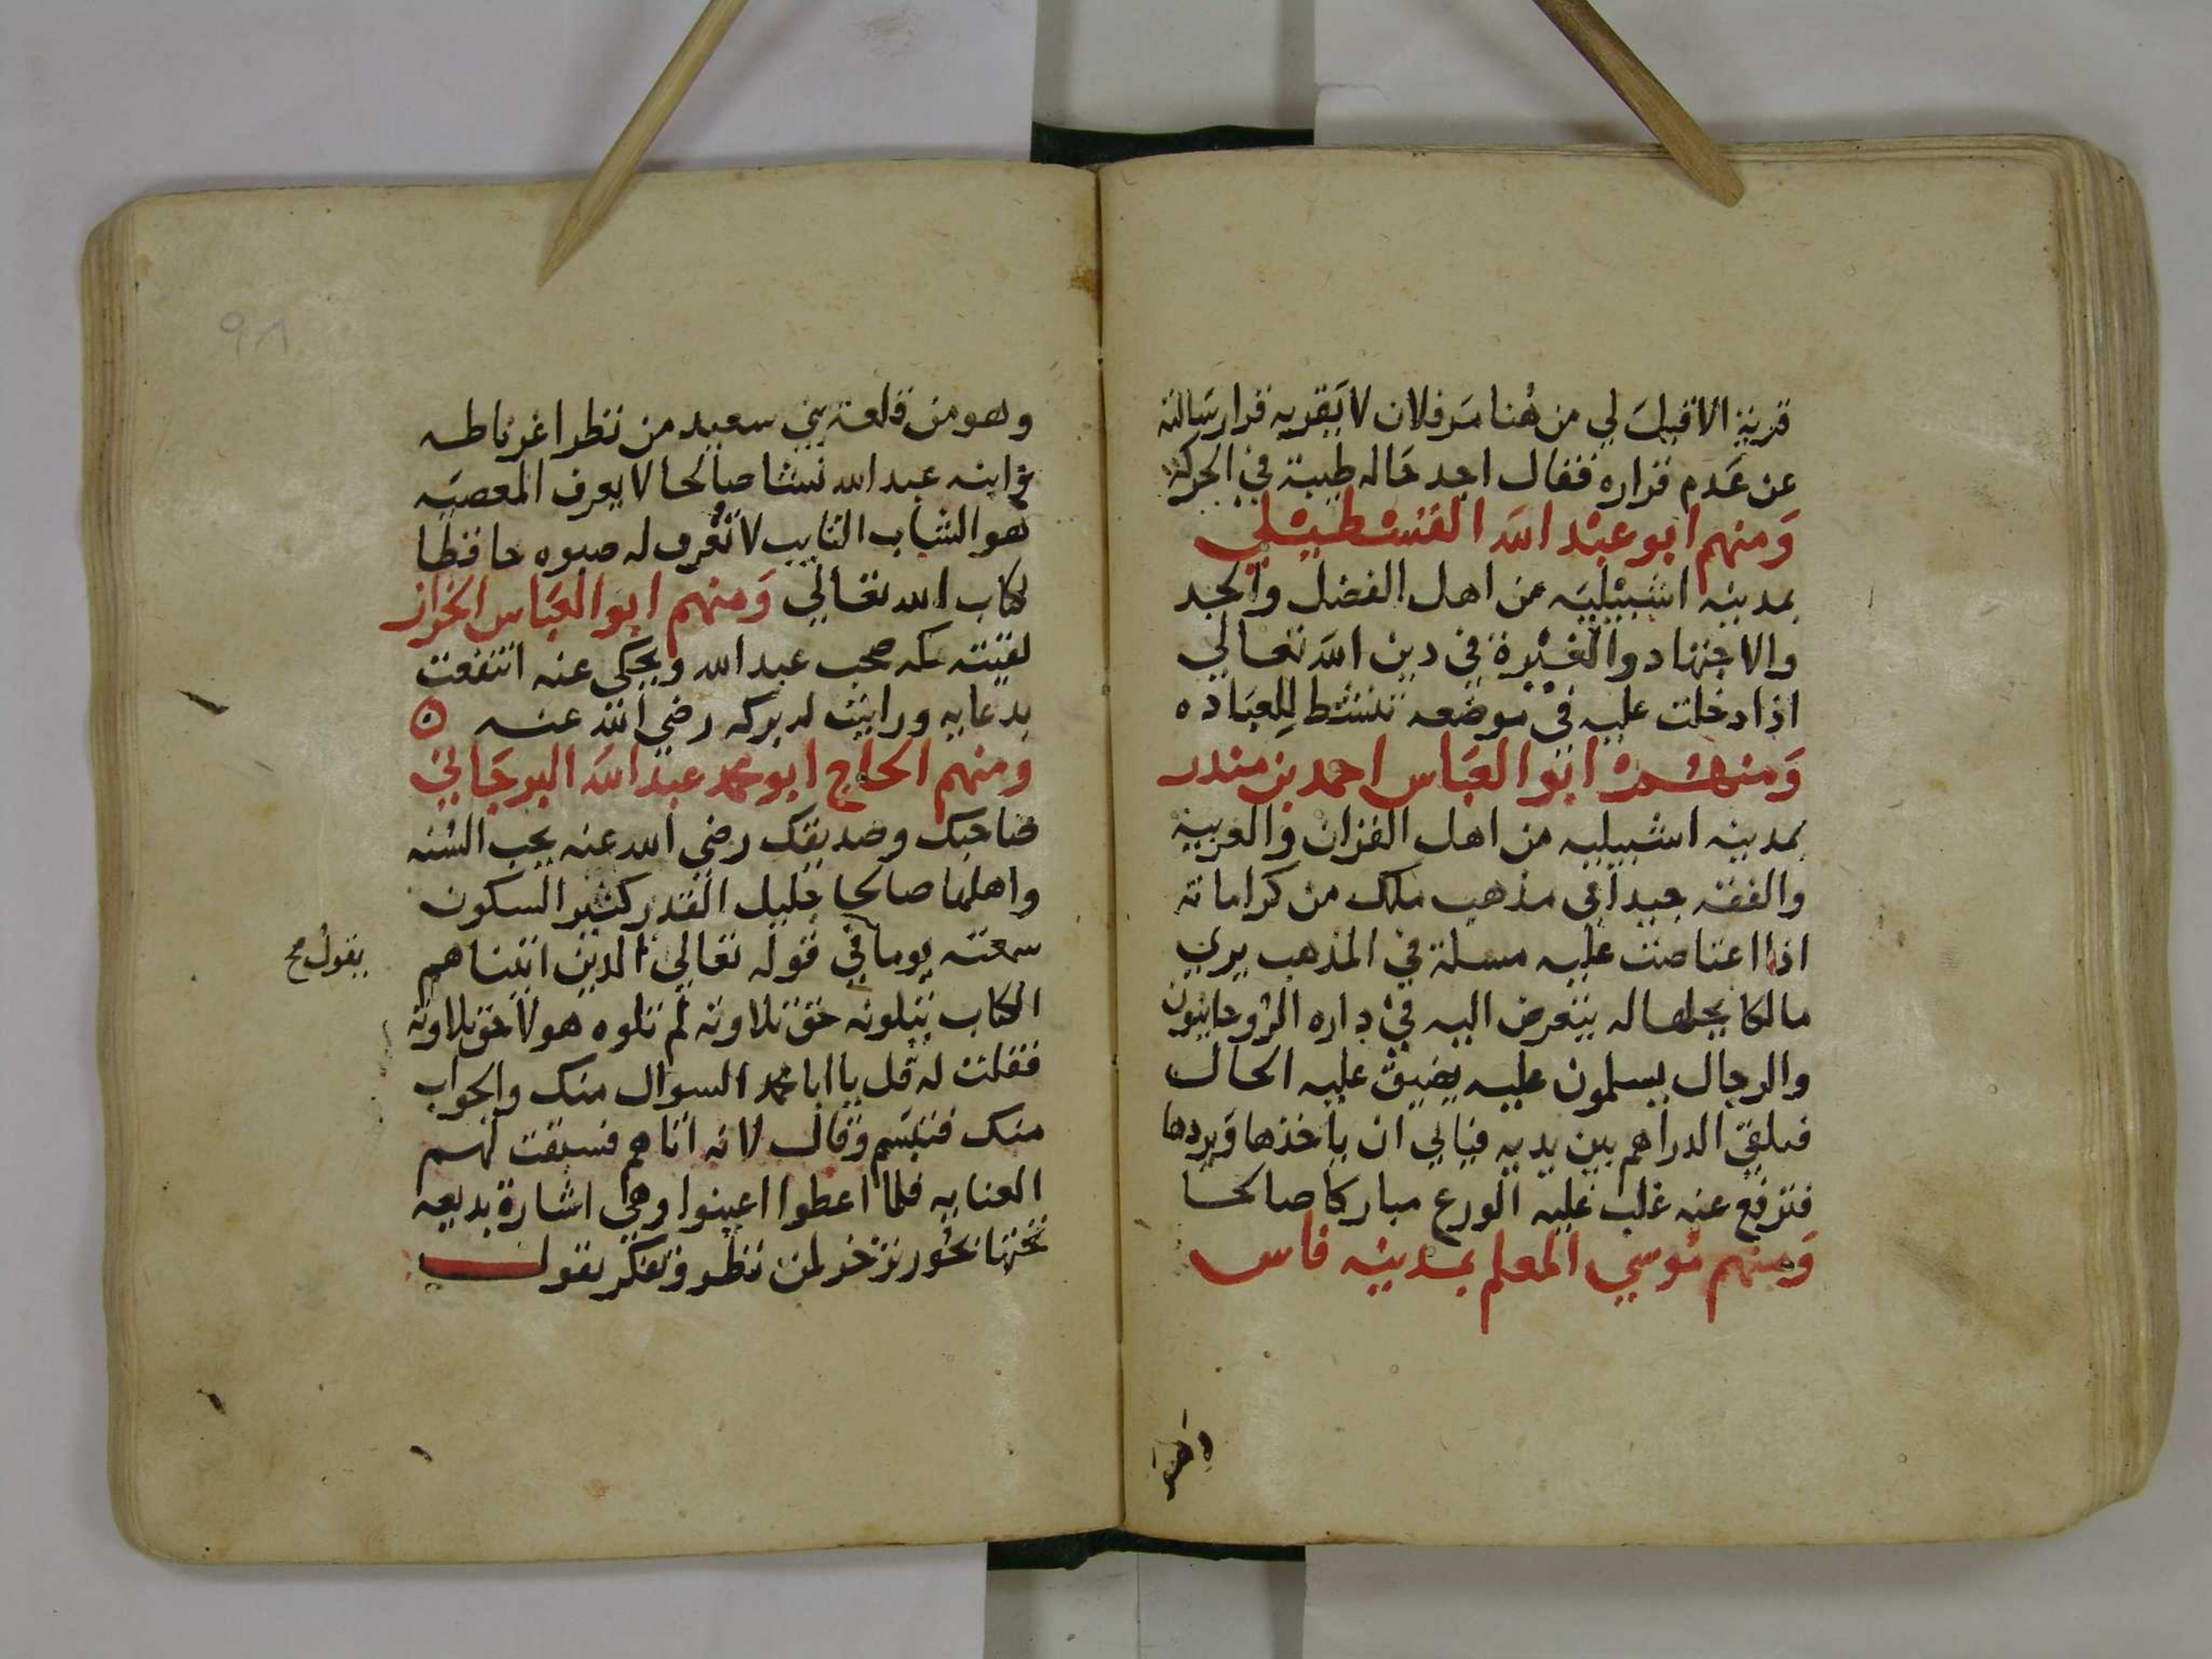 قرية الا قيل لي من هنا مر فلان لا يقر به قرار سالته
عن عدم قراره فقال اجد حاله طيبة في الحركة
ومنهم ابو عبد الله القسطيلي
بمدينه اشبيلية من اهل الفضل والجد
والاجتهاد والغيرة في دين الله تعالي
اذا دخلت عليه في موضعه تنشط للعباده
ومنهم ابو العباس احمد بن منذر
بمدينه اشبيليه من اهل القران والعربية
والفقه جيدا في مذهب ملك من كراماته
اذا اعتاصت عليه مسلة في المذهب يري
مالكا يحلها له يتعرض اليه في داره الروحانيون
والرجال يسلمون عليه يضيق عليه الحال
فيلقي الدراهم بين يديه فيابي ان ياخذها ويردها
فترفع عنه غلب عليه الورع مباركا صالحا
ومنهم موسي المعلم بمدينه فاس
وهو
٩٨
وهو من قلعة بني سعيد من نظر اغرناطه
وابنه عبد الله نشا صالحا لا يعرف المعصيه
هو الشاب التايب لا تعرف له صبوه حافظا
لكتاب الله تعالي ومنهم ابو العباس الخراز
لقيته بمكه صحب عبد الله ويحكي عنه انتفعت
بدعايه ورايت له بركه رضي الله عنه ه
ومنهم الحاج ابو محمد عبد الله البرجاني
صاحبك وصديقك رضي الله عنه يحب السنه
واهلها صالحا جليل القدر كثير السكون
سمعته يوما في قوله تعالي الذين اتيناهم
يقول صح
الكتاب يتلونه حق تلاوته لم تلوه هولا حق تلاوته
فقلت له قل يا ابا محمد السوال منك والجواب
منك فتبسم وقال لانه اتاهم فسبقت لهم
العنايه فلما اعطوا اعينوا وهي اشارة بديعه
تحتها بحور تزخر لمن نظر وتفكر يقول